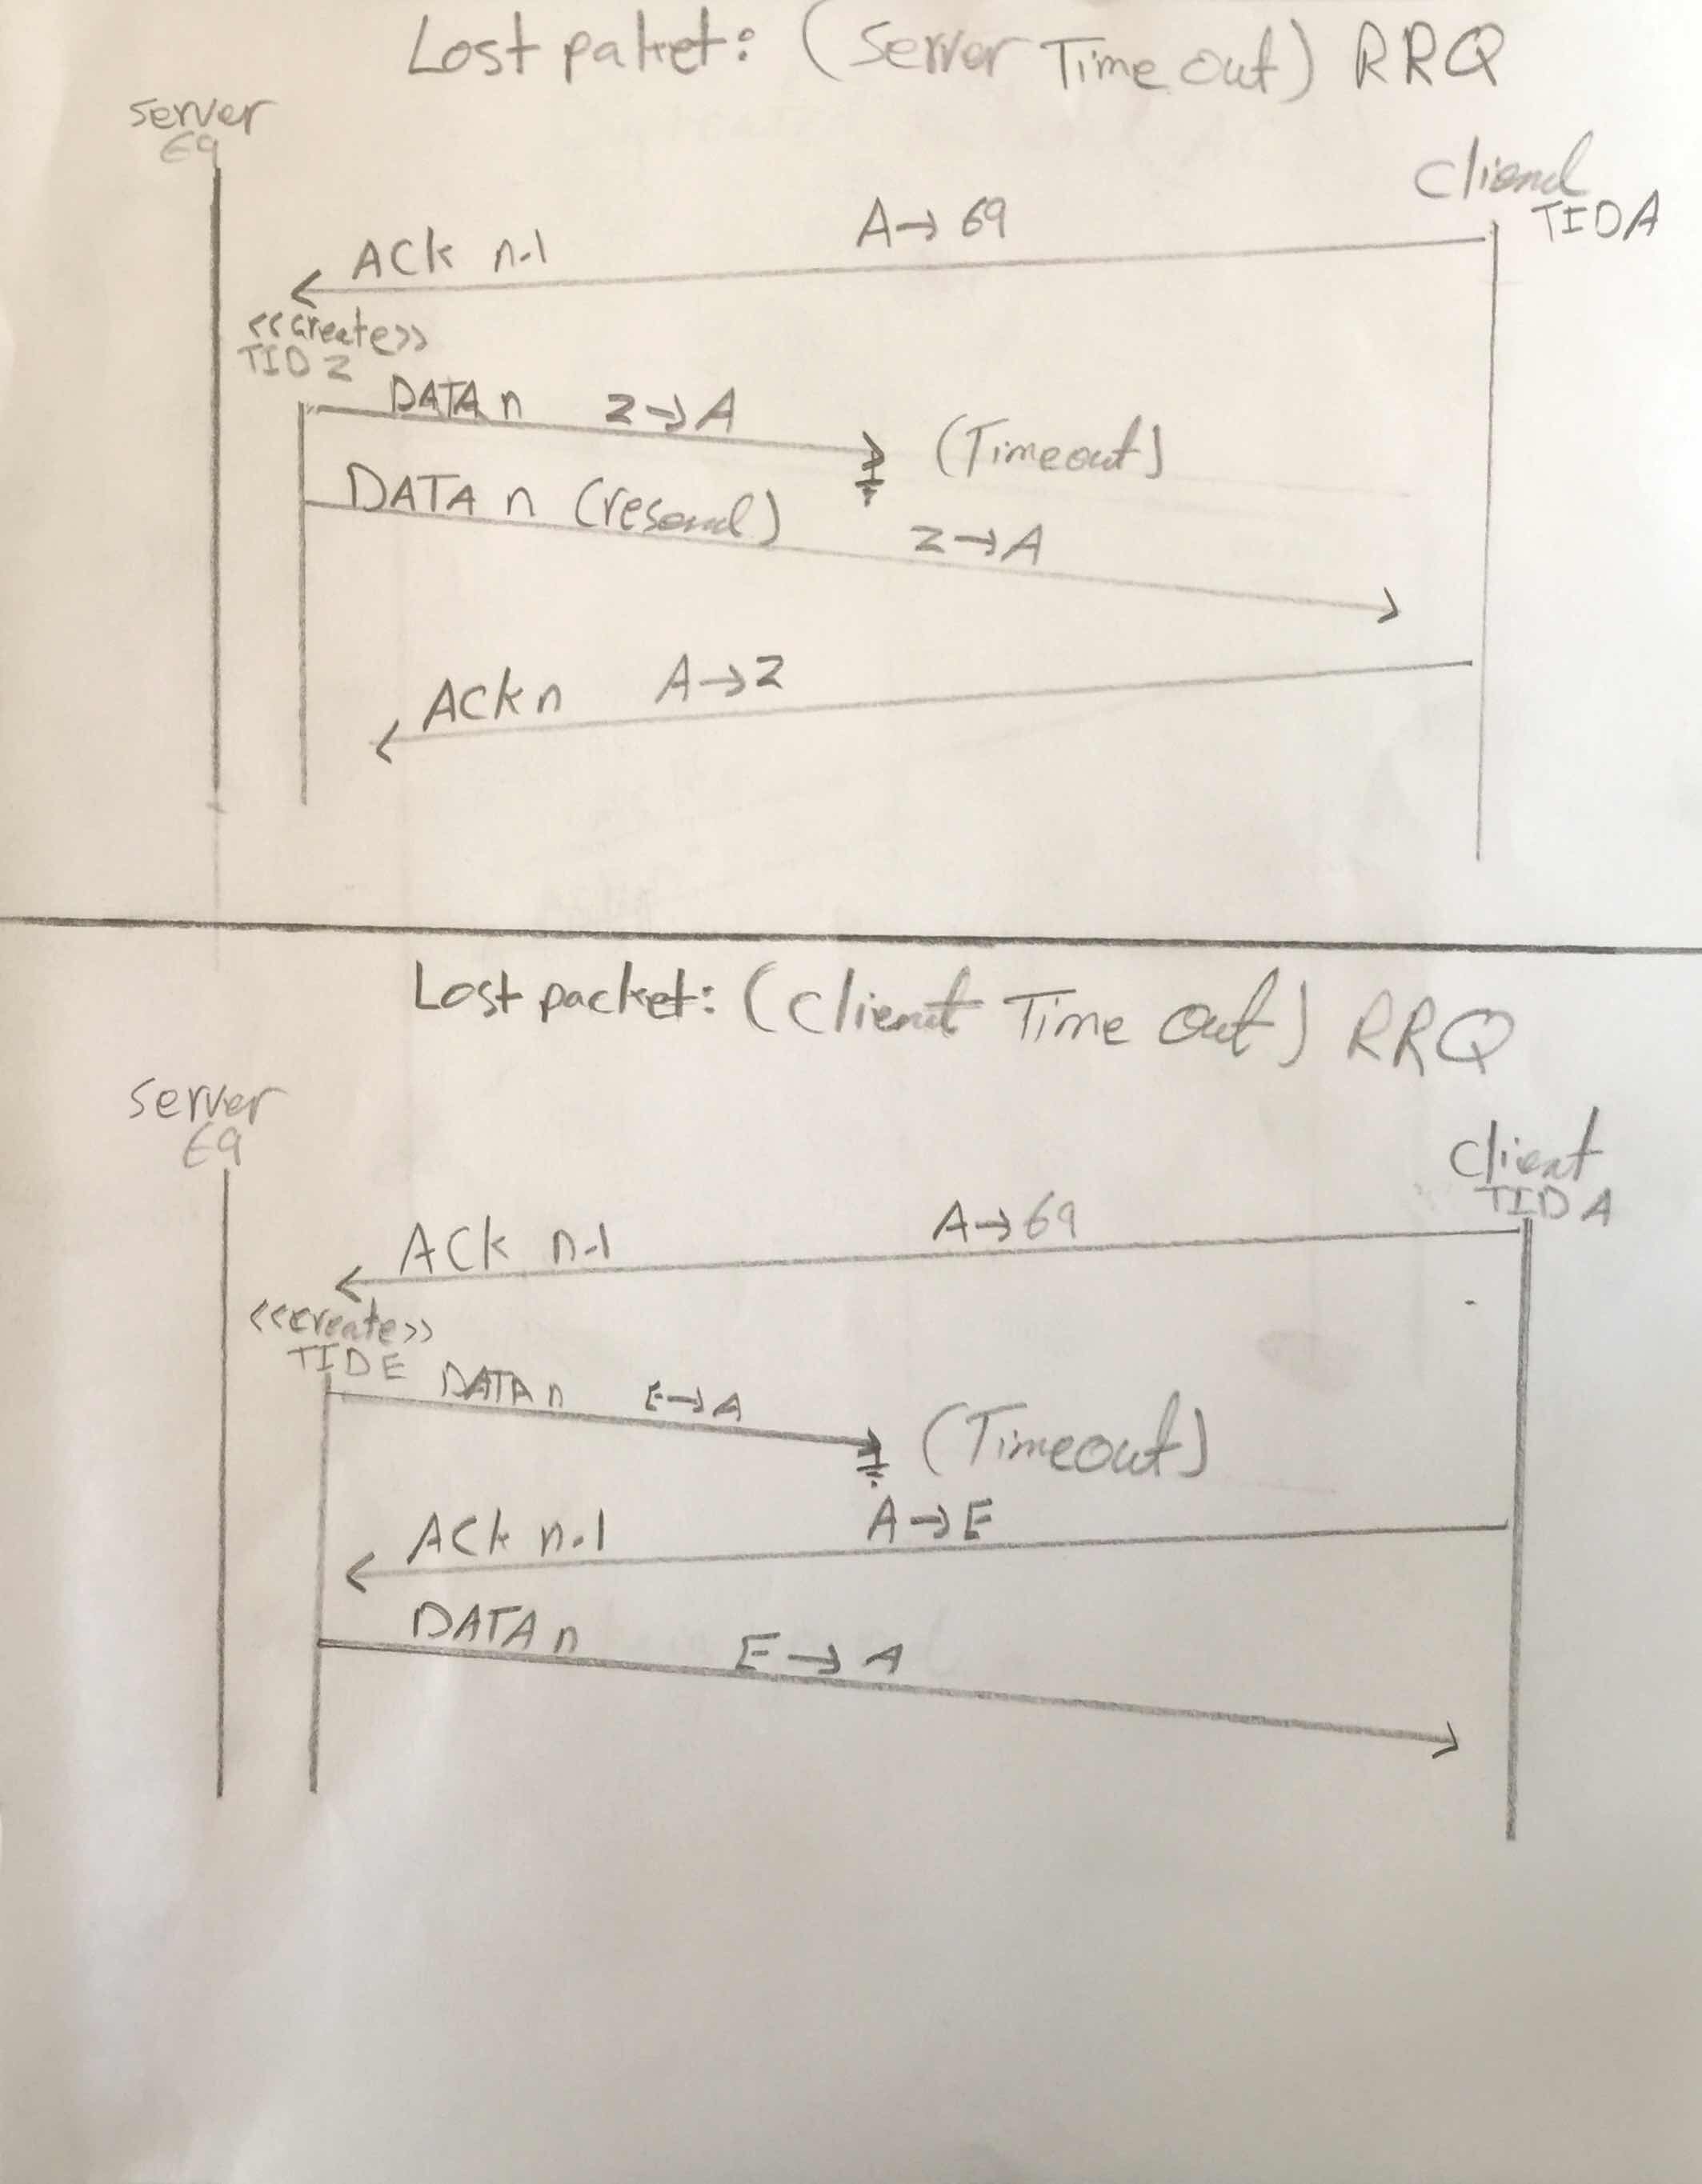 Lost paket: (Server Time out) RRQ
server
69
cliend
TID A
A→69
ACK n-1
<<create>>
TID Z
DATA n Z→A
(Timeout)
DATA n (resend)
Z→A
ACK n A→Z
Lost packet: (Client Time Out) RRQ
server
69
client
TID A
A→69
ACK n-1
<<create>>
TID E
DATA n E→A
(Timeout)
A→E
ACK n-1
DATA n E→A